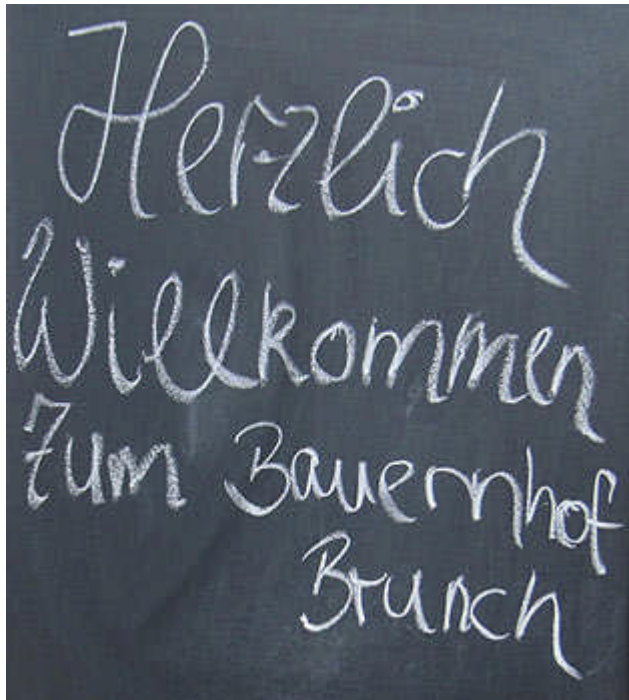 Herzlich
Willkommen
Zum Bauernhof
Brunch